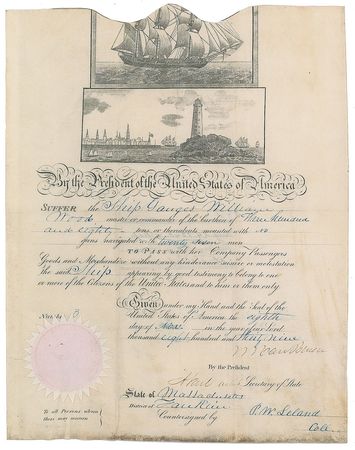 By the President of the United States of America
SUFFER the Ship Ganges William
Wood master or commander of the burthen of Three Hundred
and eighty tons or thereabouts mounted with no
guns navigated with twenty seven men
TO PASS with her Company Passengers
Goods and Merchandize without any hinderance seisure or molestation
the said Ship appearing by good testimony to belong to one
or more of the Citizens of the United States and to him or them only
Given under my Hand and the Seal of the
United States of America the eighth
day of in the year of our Lord
thousand eight hundred and thirty nine
M Van Buren
By the President
Secretary of State
State of Massachusetts
District of
Countersigned by P. W. Leland
Coll
To all Persons whom
these may concern